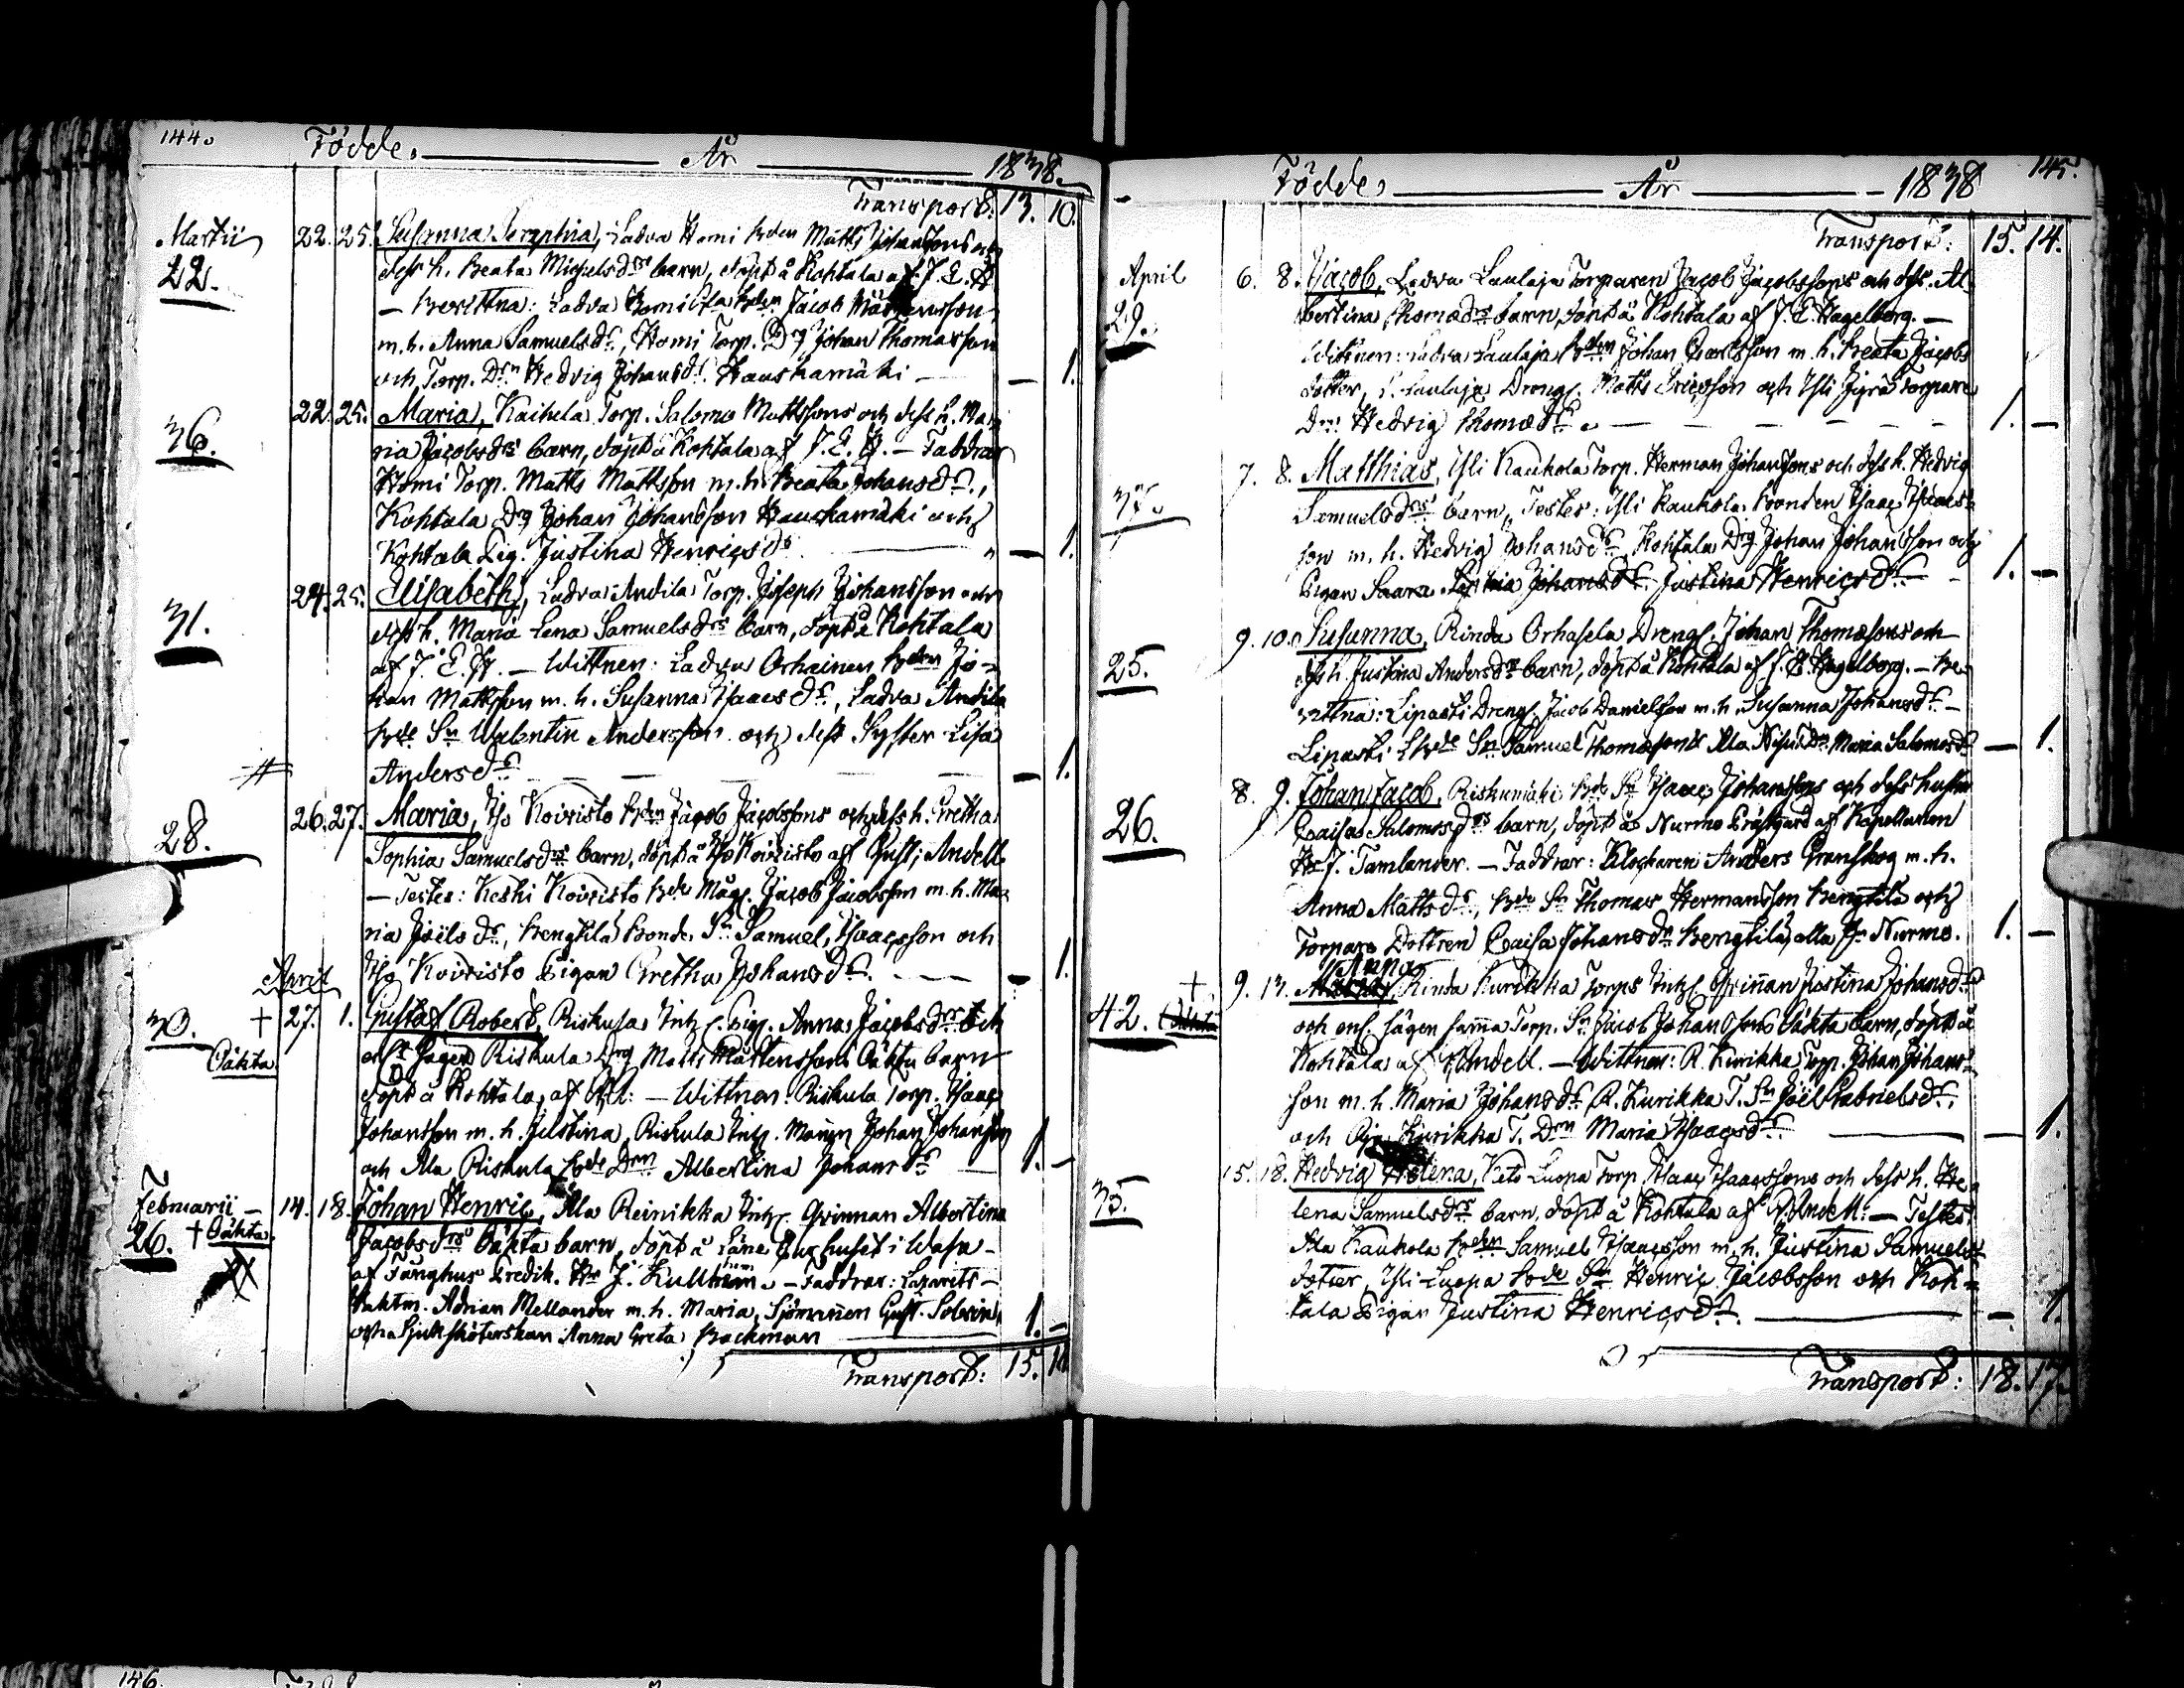 144.
Födde. År 1838.
Transport: 13. 10.
Martii 22. 25. Susanna Seraphia, Ladva Homi Bden Matts Johanssons och
22. dess h. Beata Michelsdrs barn, döpt å Kohtala af J. E. H.
— Bevittna: Ladva Homi Bden Jacob Mårtensson
m. h. Anna Samuelsdr, Homi Torp. Drg Johan Thomasson
och Torp. Drn Hedvig Johansdr Hauskamäki — — 1.
22. 25. Maria, Kaihela Torp. Salomo Mattssons och dess h. Ma-
36. ria Jacobsdrs barn, döpt å Kohtala af J. E. H. — Faddrar
Homi Torp. Matts Mattsson m. h. Beata Johansdr,
Kohtala Drg Johan Johansson Hauskamäki och
Kohtala Pig. Justina Henricsdr — 1.
24. 25. Elisabeth, Ladva Andila Torp. Joseph Johansson och
31. dess h. Maria Lena Samuelsdrs barn, döpt å Kohtala
af J. E. H. — Wittnen: Ladva Orhainen Bden Jo-
han Mattsson m. h. Susanna Isaacsdr, Ladva Andila
Bde Sn Walentin Andersson och dess Syster Lisa
Andersdr — 1.
26. 27. Maria, Yso Koivisto Bden Jacob Jacobssons och dess h. Gretha
28. Sophia Samuelsdrs barn, döpt å Yso Koivisto af Gust: Andell
— Testes: Keski Koivisto Bde Måg. Jacob Jacobsson m. h. Ma-
ria Joëlsdr, Bengtilä Bonde Sn Samuel Isaacsson och
Yso Koivisto Pigan Gretha Johansdr. — 1.
April
30. + 27. 1. Gustaf Robert, Riskula Inh. Pig. Anna Jacobsdrs och
Oäkta Riskula Drg Matts Mårtenssons Oäkta barn
döpt å Kohtala, af — Wittnen: Riskula Torp. Isaac
Johansson m. h. Justina, Riskula Inh. Mannen Johan Johansson
och Ala Riskula Bde Drn Albertina Johansdr — 1. —
Februarii 14. 18. Johan Henric, Ala Reinikka Inh. Qvinnan Albertina
26. + Oäkta Jacobsdrs Oäkta barn, döpt å Läne Cur huset i Wasa
af Fånghus Predik. Hr J. — Faddrar: Lazarets-
Vaktm. Adrian Mellander m. h. Maria, Sjömannen Gust.
och Sjuksköterskan Anna Greta Backman 1. —
Transport: 15. 14.
145.
Födde. År 1838
Transport: 15. 14.
April 6. 8. Jacob, Ladva Laulaja Torparen Jacob Jacobssons och dess. Al-
29. bertina Thomædrs barn, döpt å Kohtala af J. E. Hagelberg. —
Wittnen: Ladva Laulaja Bden Johan Carlsson m. h. Beata Jacobs
dotter, L. Laulaja Dreng. Matts Ericsson och Yli Torpare
Drn Hedvig Thomædr. — 1. —
7. 8. Matthias, Yli Kauhola Torp. Herman Johanssons och dess h. Hedvig
37. Samuelsdrs barn, Testes: Yli Kauhola Bonden Isaac Isaacs-
son m. h. Hedvig Johansdr, Kohtala Drg Johan Johansson och
Pigan Saara Johansdr. Justina Henricsdr — 1. —
9. 10. Susanna, Rinda Orhasela Dreng. Johan Thomæsons och
25. dess h. Justina Andersdrs barn, döpt å Kohtala af J. E. Hagelberg. — Be-
vittna: Lipasti Dreng. Jacob Danielsson m. h. Susanna Johansdr —
Lipasti Sn Samuel Thomæson & Ala Drn Maria Salomosdr — 1.
8. 9. Johan Jacob, Riskumäki Bde Sn Isaac Johanssons och dess hustru
26. Caisa Salomosdrs barn, döpt å Nurmo Prästgård af Kapellanen
Hr J. Tamlander. — Faddrar: Klockaren Anders Granskog m. h.
Anna Mattsdr, Bde Sn Thomas Hermansson Bengtilä och
Torpare Dottren Caisa Johansdr Bengtilä, alla fr. Nurmo. 1. —
Anna
+ 9. 13. Rinda Kurikka Torps Inh. Qvinnan Justina Johansdrs
42. Oäkta och enl. sägen samma Torp. Sn Jacob Johanssons Oäkta barn, döpt å
Kohtala af Andell. — Wittnen: R. Kurikka Torp. Johan Johans-
son m. h. Maria Johansdr, R. Kurikka T. Sn Joël Gabrielsdr.
och Kurikka T. Drn Maria Isaacsdr — 1.
15. 18. Hedvig Helena, Keto Luopa Torp. Isaac Isaacssons och dess h. He-
35. lena Samuelsdrs barn, döpt å Kohtala af Andell: — Testes:
Ala Kauhola Bden Samuel Isaacsson m. h. Justina Samuels
dotter, Yli Luopa Bde Sn Henric Jacobsson och Koh-
tala Pigan Justina Henricsdr. — 1.
Transport: 18. 17.
146.